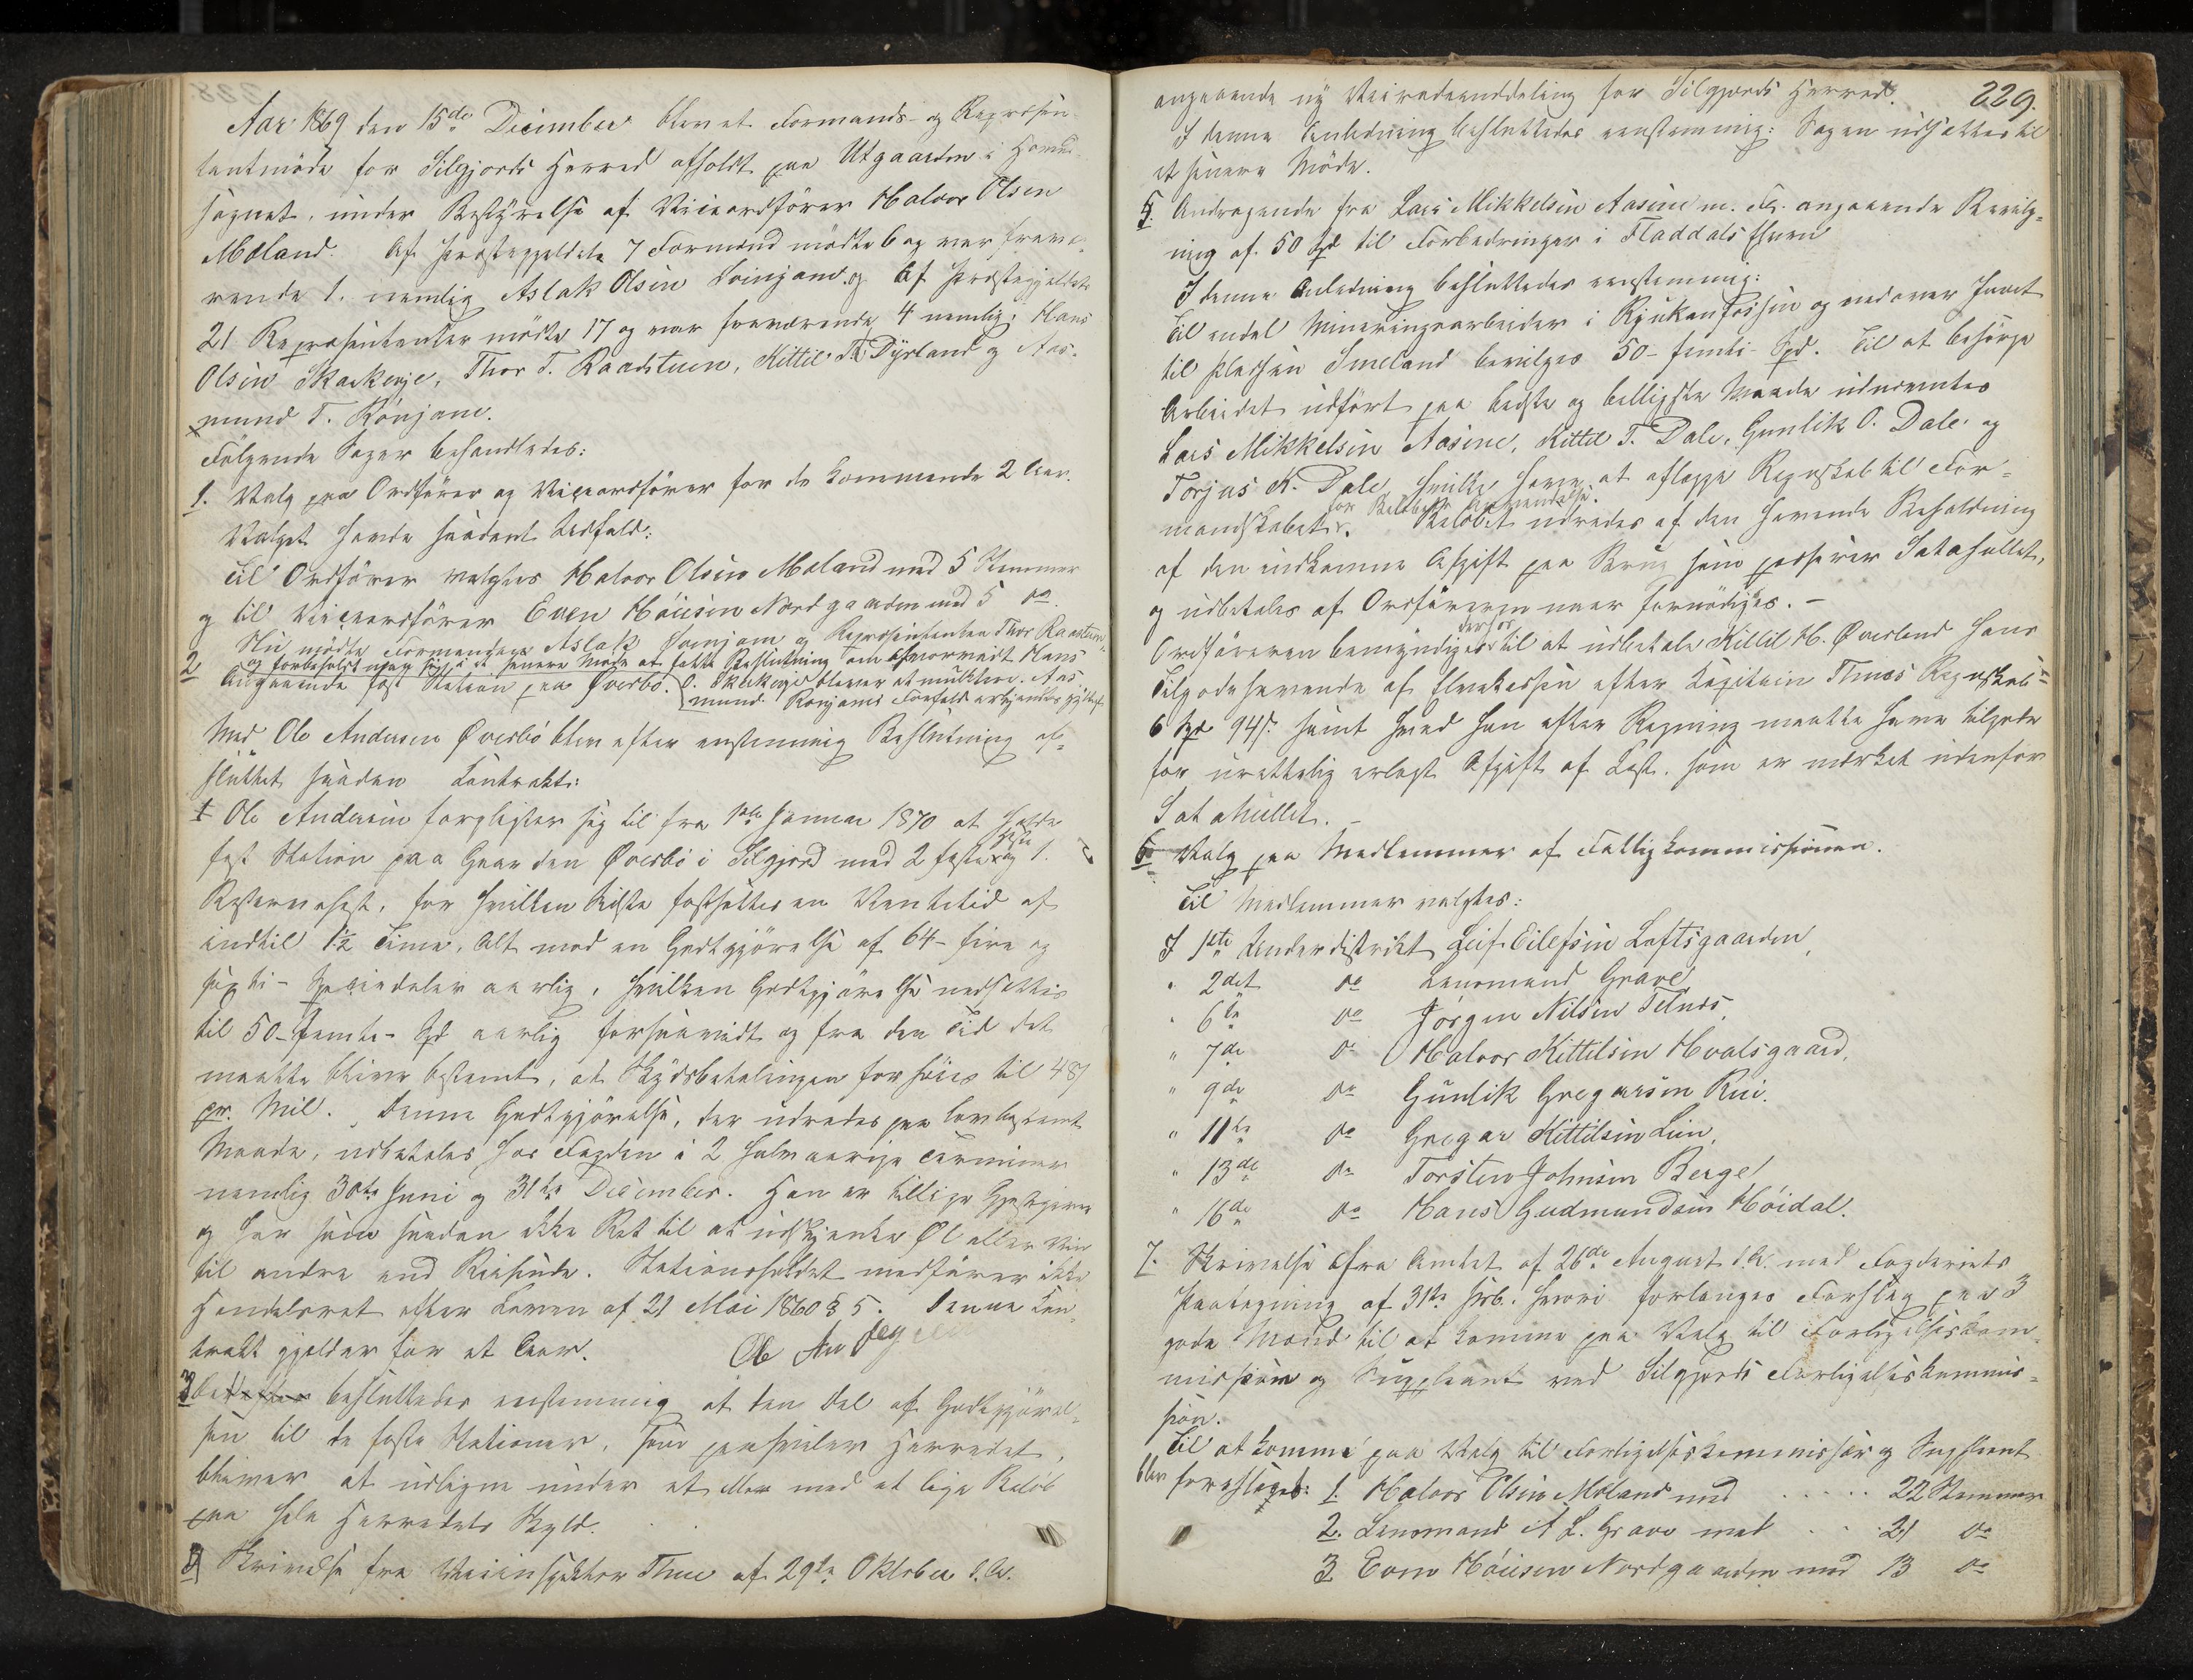 Aar 1869 den 15de December blev et Formands- og Repræsen-
tantmøde for Silgjords Herred afholdt paa Utgaarden i Hoved-
sognet, under Bestyrelse af Viceordfører Halvor Olsen
Moland. Af Præstegjeldets 7 Formænd mødte 6 og var fravæ-
rende 1. nemlig Aslak Olsen Loinjam og af Præstegjeldets
21 Repræsentanter mødte 17 og var fraværende 4 nemlig: Hans
Olsen Skarkenje, Thor T. Raadstuen, Kittil Dyrland og Aas-
mund T. Rønjom.
Følgende Sager behandledes:
1. Valg paa Ordfører og Viceordfører for de kommende 2 Aar.
Valget havde saadant Udfald:
Til Ordfører valgtes Halvor Olsen Moland med 5 Stemmer
og til Viceordfører Even Høiesen Nordgaarden med 5 do.
Nu mødte Formanden Aslak Loinjam og Repræsentanten Thor Raastuen
og forbeholdt man sig i et senere Møde at fatte Beslutning om hvorvidt Hans
2 Angaaende fast Station paa Øverbø. O. Skarkenje bliver at mulktere. Aas-
mund Rønjoms Forfald erkjendtes gyldigt.
Med Ole Andersen Øverbø blev efter enstemmig Beslutning af-
sluttet saadan Contrakt:
Ole Andersen forpligter sig til fra 1ste Januar 1870 at holde
fast Station paa Gaarden Øverbø i Silgjord med 2 faste Heste og 1.
Reservehest, for hvilken sidste fastsættes en Ventetid af
indtil 1½ Time, Alt mod en Godtgjørelse af 64- fire og
sexti- Speciedaler aarlig, hvilken Godtgjørelse nedsættes
til 50- femti- Spd aarlig forsaavidt og fra den Tid det
maatte blive bestemt, at Skydsbetalingen forhøies til 48/
pr. Mil. Denne Godtgjørelse, der udredes paa lovbestemt
Maade, udbetales hos Fogden i 2 halvaarige Terminer
nemlig 30te Juni og 31te December. Han er tillige Gjestgiver
og har som saadan ikke Ret til at udskjenke Øl eller Vin
til andre end Reisende. Stationsholdet medfører ikke
Handelsret efter Loven af 21 Mai 1860 § 5. Denne Con-
trakt gjelder for et Aar. Ole An
3 besluttedes enstemmig at den Del af Godtgjørel-
sen til de faste Stationer, som paahviler Herredet,
bliver at udligne under et med et lige Beløb
paa hele Herredets Skyld.
Skrivelse fra Veiinspektør Thue af 29de Oktober d.A.
229.
angaaende ny Veirodeinddeling for Silgjords Herred.
I denne Anledning besluttedes enstemmig: Sagen udsættes til
et senere Møde.
5. Andragende fra Lars Mikkelsen Aasine m. Fl. angaaende Bevilg-
ning af 50 Spd til Forbedringer i Fladdals Elven
I denne Anledning besluttedes enstemmig:
Til endel Mineringsarbeider i Rjukanfossen og nedover Juvet
til Pladsen Smeland bevilges 50- femti- Spd. Til at besørge
Arbeidet udført paa bedste og billigste Maade udnævntes
Lars Mikkelsen Aasine, Kittil T. Dale, Gunlik O. Dale og
Torjus K. Dale, hvilke have at aflægge Regnskab til For-
mandskabet for Beløbets Anvendelse. Beløbet udredes af den havende Beholdning
af den indkomne Afgift paa Brug som passerer Satahullet,
og udbetales af Ordføreren naar fornødiges. –
Ordføreren bemyndiges derhos til at udbetale Kittil H. Øverland hans
Tilgodehavende af Elvekassen efter Kapitain Thues Regnskab-
6 Spd 94/ samt hvad han efter Regning maatte have tilgode
for urettelig erlagt Afgift af Last, som er mærket udenfor
Satahullet. –
6 Valg paa Medlemmer af Fattigkommissionen.
Til Medlemmer valgtes:
I 1ste Underdistrikt Leif Eilefsen Loftsgaarden,
" 2det do Lensmand Grave
" 6te do Jørgen Nilsen Telnes,
" 7de do Halvor Kittilsen Hvalsgaard,
" 9de do Gunlik Gregarsen Rui.
" 11te do Gregar Kittilsen Lien,
" 13de do Torsten Johnsen Berge
" 16de do Hans Gudmundsen Høidal.
7. Skrivelse fra Amtet af 26de August d.A. med Fogderiets
Paategning af 31te s. hvori forlanges Forslag paa 3
gode Mænd til at komme paa Valg til Forligelseskom-
missær og Suppleant ved Silgjords Forligelseskommis-
sion.
Til at komme paa Valg til Forligelseskommissær og Suppleant
blev foreslaget: 1. Halvor Olsen Moland med ..... 22 Stemmer
2. Lensmand A L. Grave med ... 21 do
3. Even Høiesen Nordgaarden med 13 do